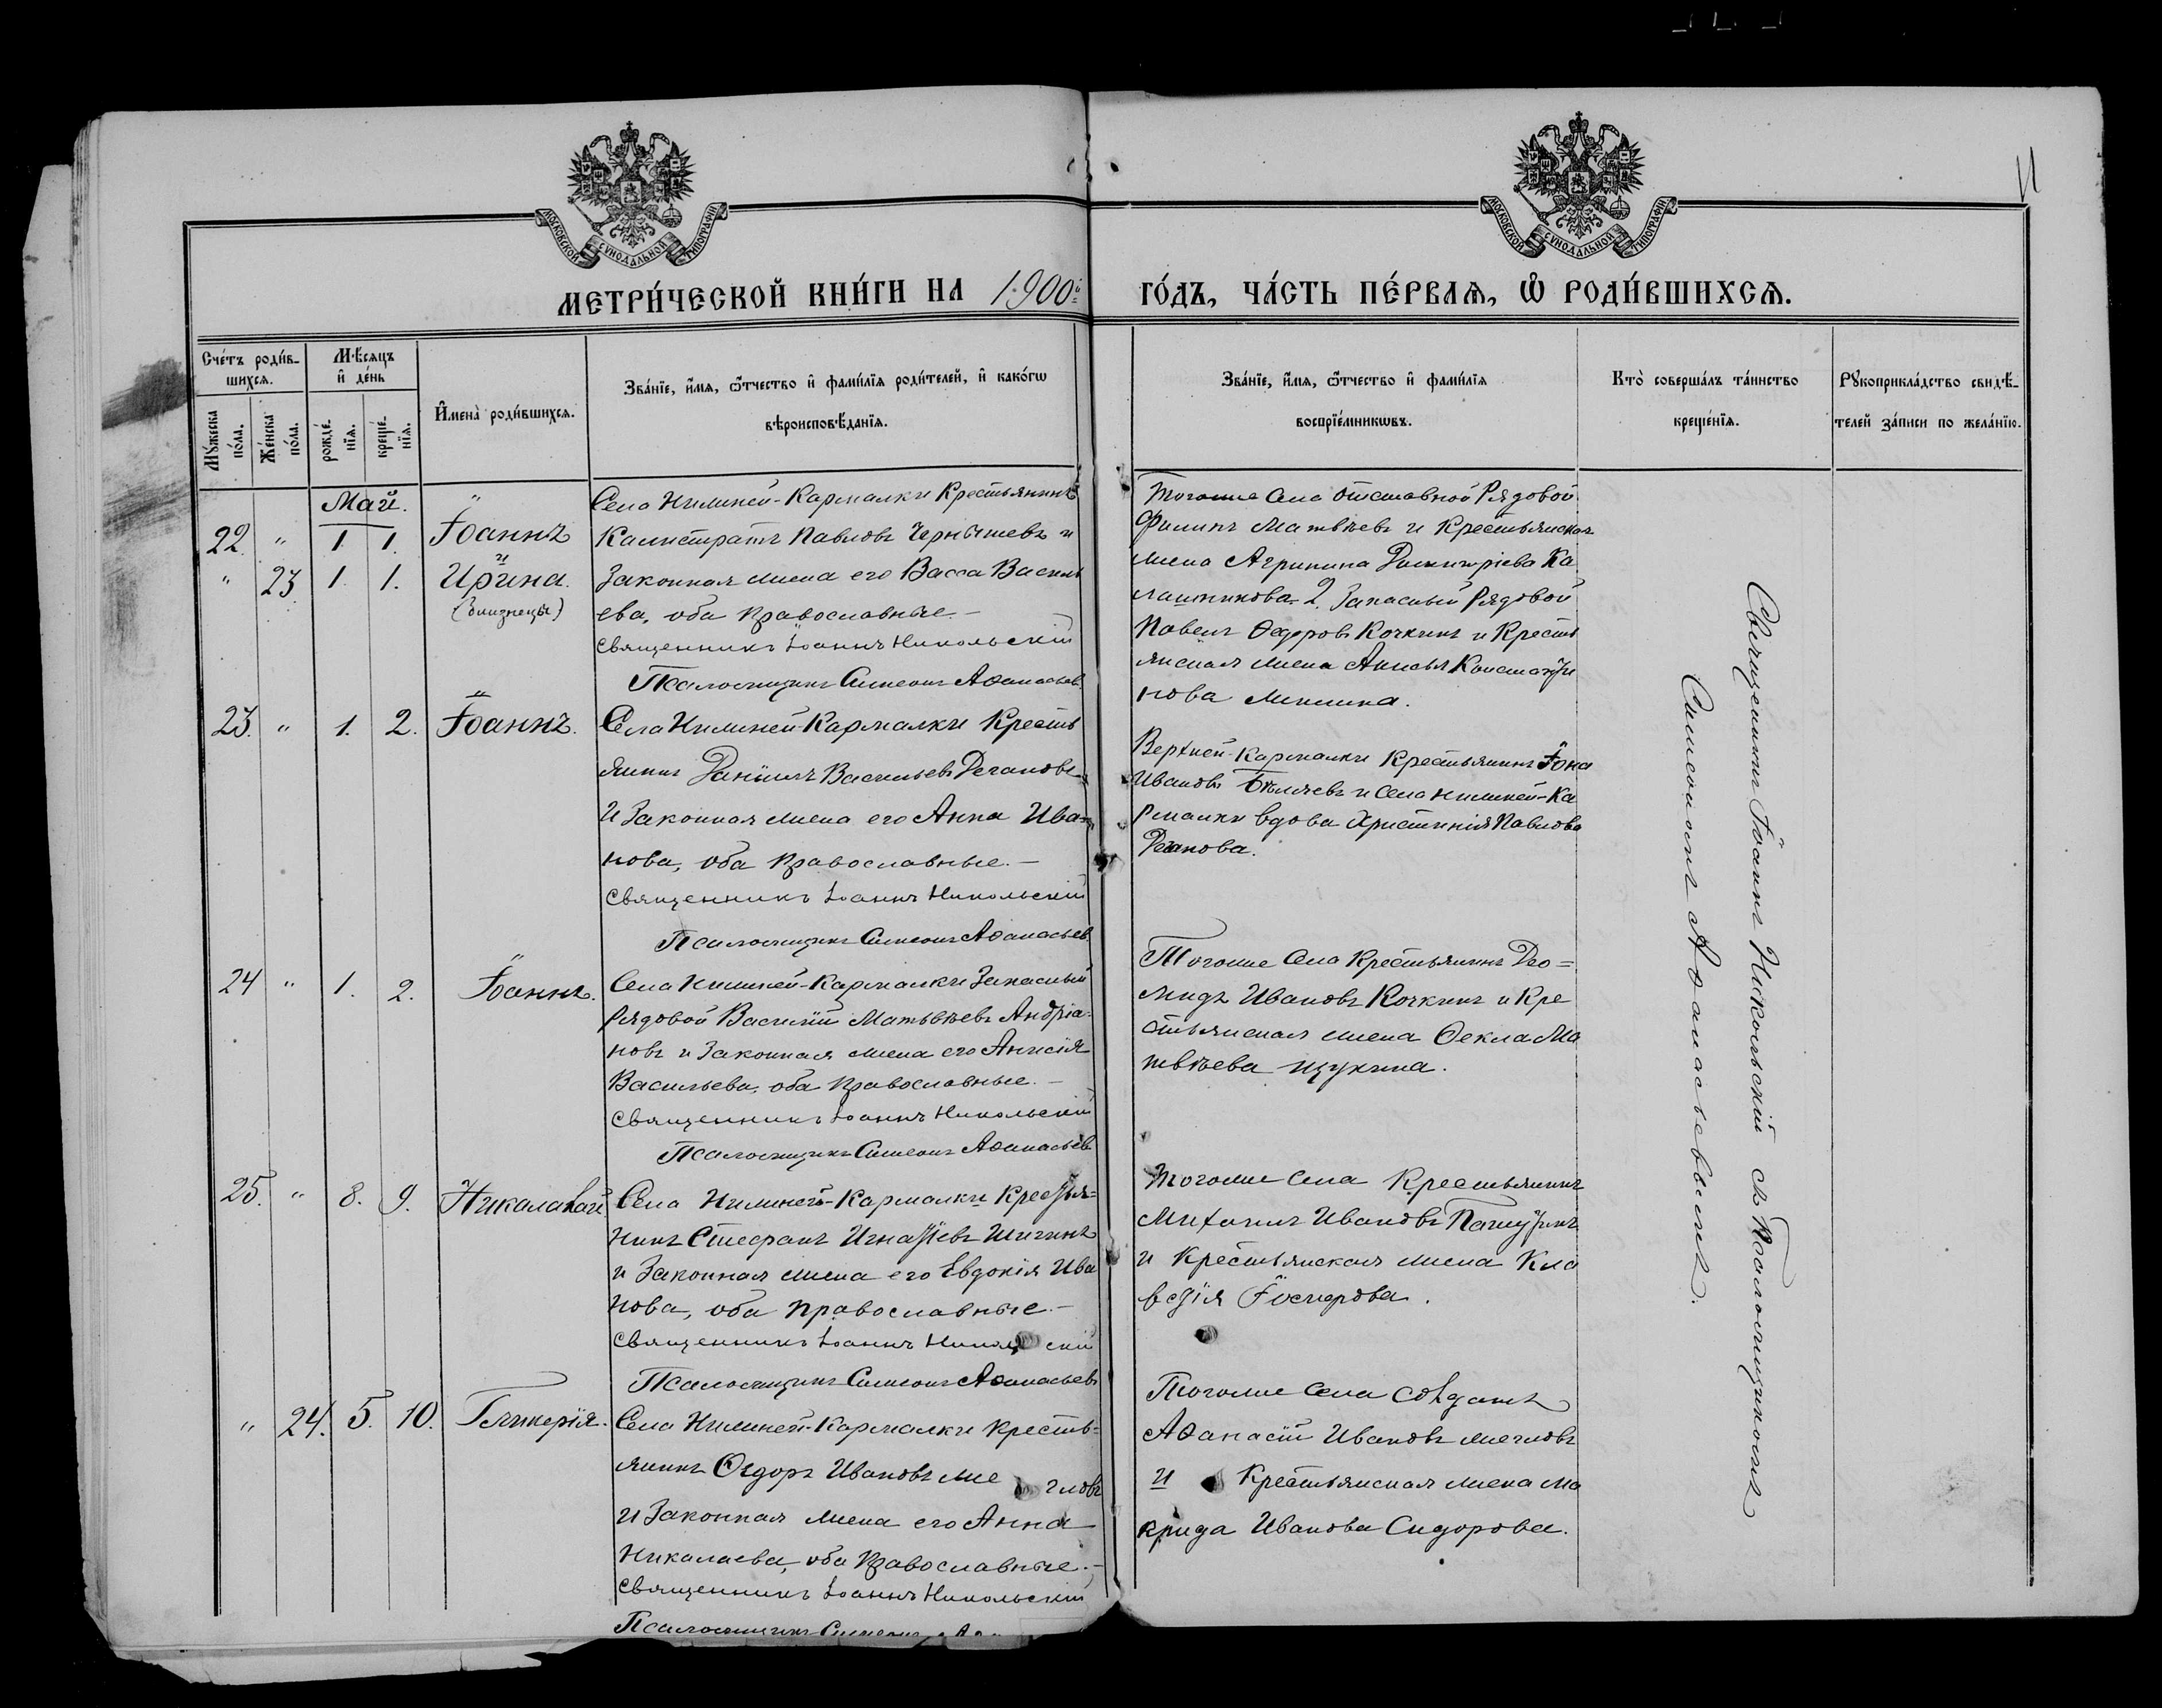 МОСКОВСКОЙ СѴНОДАЛЬНОЙ ТИПОГРАФІИ
МОСКОВСКОЙ СѴНОДАЛЬНОЙ ТИПОГРАФІИ
11
МЕТРИ́ЧЕСКОЙ КНИ́ГИ НА 1900й
ГО́ДЪ, ЧА́СТЬ ПЕ́РВАѦ, Ѽ РОДИ́ВШИХСѦ.
Сче́тъ роди́в-
шихсѧ.
Мѣ́сѧцъ
и҆ де́нь
Мꙋ́жеска
по́ла.
Же́нска
по́ла.
рожде́-
нїѧ.
креще́-
нїѧ.
И҆мена̀ роди́вшихсѧ.
Зва́нїе, и҆́мѧ, ѻ҆́тчество и҆ фами́лїѧ роди́телей, и҆ како́гѡ
вѣроисповѣ́данїѧ.
Зва́нїе, и҆́мѧ, ѻ҆́тчество и҆ фами́лїѧ
воспрїе́мникѡвъ.
Кто̀ соверша́лъ та́инство
креще́нїѧ.
Рꙋкоприкла́дство свидѣ́-
телей за́писи по жела́нїю.
Май.
22. " 1. 1. Іоаннъ
и
" 23 1. 1. Ирина.
(близнецы)
Села Нижней-Кармалки Крестьянинъ
Калистратъ Павловъ Чернышевъ и
законная жена его Васса Василь
ева, оба православные.-
Священникъ Іоаннъ Никольскій
Псаломщикъ Симеонъ Аѳанасьевъ
Тогоже села отставной Рядовой
Филипъ Матвѣевъ и Крестьянская
жена Агрипина Димитріева Ка
лашникова. 2. Запасный Рядовой
Павелъ Ѳедоровъ Кочкинъ и Кресть
янская жена Анисья Константи
нова Мишина.
23. " 1. 2. Іоаннъ.
Села Нижней-Кармалки Кресть
янинъ Даніилъ Васильевъ Дегановъ
и Законная жена его Анна Ива-
нова, оба православные.-
Священникъ Іоаннъ Никольскій
Псаломщикъ Симеонъ Аѳанасьевъ
Верхней-Кармалки Крестьянинъ Іона
Ивановъ и села нижней-Ка
рмалки вдова Христинія Павлова
Деганова.
24 " 1. 2. Іоаннъ.
Села Нижней-Кармалки Запасный
Рядовой Василій Матьвѣевъ Андріа-
новъ и Законная жена его Анисія
Васильева, оба православные.-
Священникъ Іоаннъ Никольскій
Псаломщикъ Симеонъ Аѳанасьевъ
Тогоже села Крестьянинъ Дio=
мидъ Ивановъ Кочкинъ и Кре
стьянская жена Ѳекла Ма
твѣева щукина.
25. " 8. 9. Николай
Села Нижней-Кармалки Крестья=
нинъ Стефанъ Игнатіевъ Шигинъ
и Законная жена его Евдокія Ива
нова, оба православные.-
Священникъ Іоаннъ Николь скій
Псаломщикъ Симеонъ Аѳанасьевъ
Тогоже села Крестьянинъ
Михаилъ Ивановъ
и Крестьянская жена Кла
вдія
" 24. 5. 10. Гликерія.
Села Нижней-Кармалки Кресть=
янинъ Ѳедоръ Ивановъ
и Законная жена его Анна
Николаева, оба православные.-
Священникъ Іоаннъ Никольскій
Псаломщикъ Симеонъ
Тогоже села солдатъ
Аѳанасій Ивановъ
и Крестьянская жена Ма
крида Иванова Сидорова.
Священникъ Іоаннъ Никольскій съ Псаломщикомъ
Симеономъ Аѳанасьевымъ.